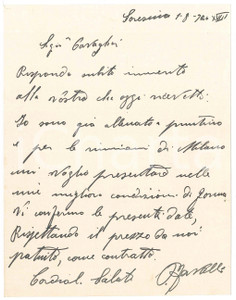 Soresina 1-8-
Rispondo subito
alla vostra che oggi ricevetti.
Io sono già allenato
e per le riunioni di Milano
mi voglio presentare nelle
mie migliori condizioni di forma.
Vi confermo le presenti date,
Rispettando il prezzo da noi
pattuito, come contratto.
Cordiali Saluti